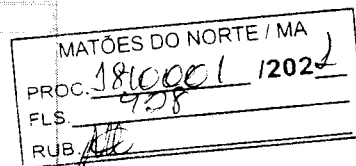 MATÕES DO NORTE / MA
PROC. 1810001 /2022
FLS. 728
RUB.